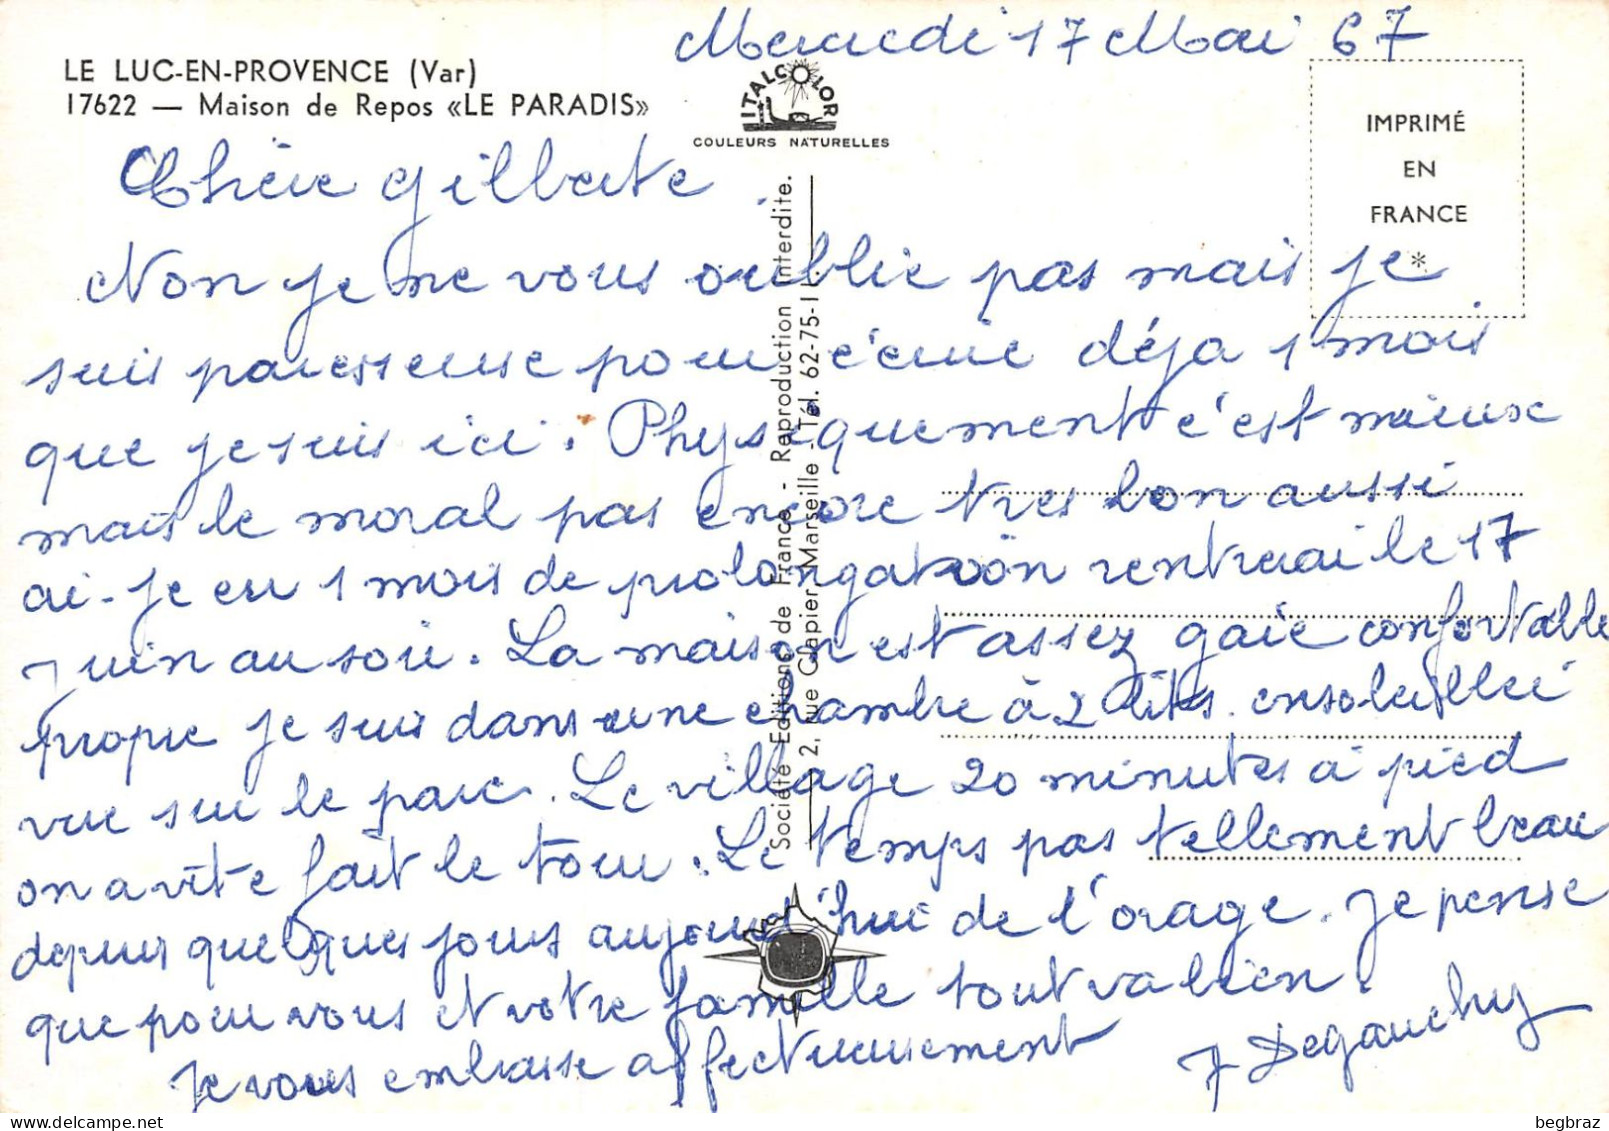 Mercredi 17 Mai 67
LE LUC-EN-PROVENCE (Var)
17622 — Maison de Repos «LE PARADIS»
ITALCOLOR
COULEURS NATURELLES
IMPRIMÉ
EN
FRANCE
*
Chère Gilberte
Non je ne vous oublie pas mais je
suis paresseuse pour écrire déja 1 mois
que je suis ici. Physiquement c'est mieux
mais le moral pas encore très bon aussi
ai-je eu 1 mois de prolongation rentrerai le 17
juin au soir. La maison est assez gaie confortable
propre je suis dans une chambre à 2 lits. ensoleillée
vue sur le parc. Le village 20 minutes à pied
on a vite fait le tour. Le temps pas tellement beau
depuis quelques jours aujourd'hui de l'orage. Je pense
que pour vous et votre famille tout va bien.
Je vous embrasse affectueusement
J Degauchy
Société Editions de France - Reproduction Interdite.
2, rue Clapier Marseille - Tél. 62-75-11.
begbraz